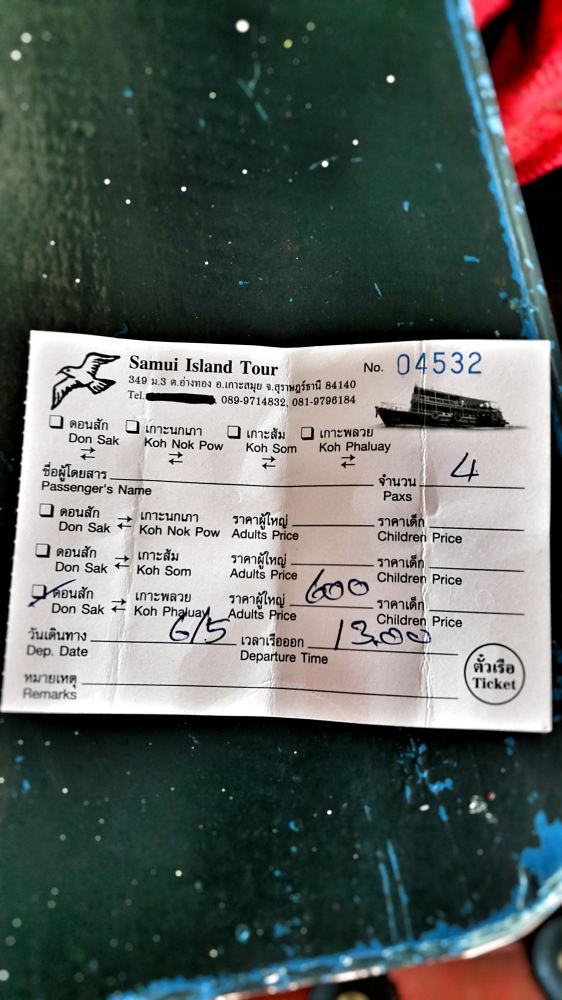 Samui Island Tour No. 04532
349 ม.3 ต.อ่างทอง อ.เกาะสมุย จ.สุราษฎร์ธานี 84140
Tel. 089-9714832, 081-9796184
ดอนสัก เกาะนกเภา เกาะส้ม เกาะพลวย
Don Sak Koh Nok Pow Koh Som Koh Phaluay
ชื่อผู้โดยสาร จำนวน 4
Passenger's Name Paxs
ดอนสัก เกาะนกเภา ราคาผู้ใหญ่ ราคาเด็ก
Don Sak Koh Nok Pow Adults Price Children Price
ดอนสัก เกาะส้ม ราคาผู้ใหญ่ ราคาเด็ก
Don Sak Koh Som Adults Price Children Price
ดอนสัก เกาะพลวย ราคาผู้ใหญ่ 600 ราคาเด็ก
Don Sak Koh Phaluay Adults Price Children Price
วันเดินทาง 6/5 เวลาเรือออก 13.00
Dep. Date Departure Time
ตั๋วเรือ
Ticket
หมายเหตุ
Remarks